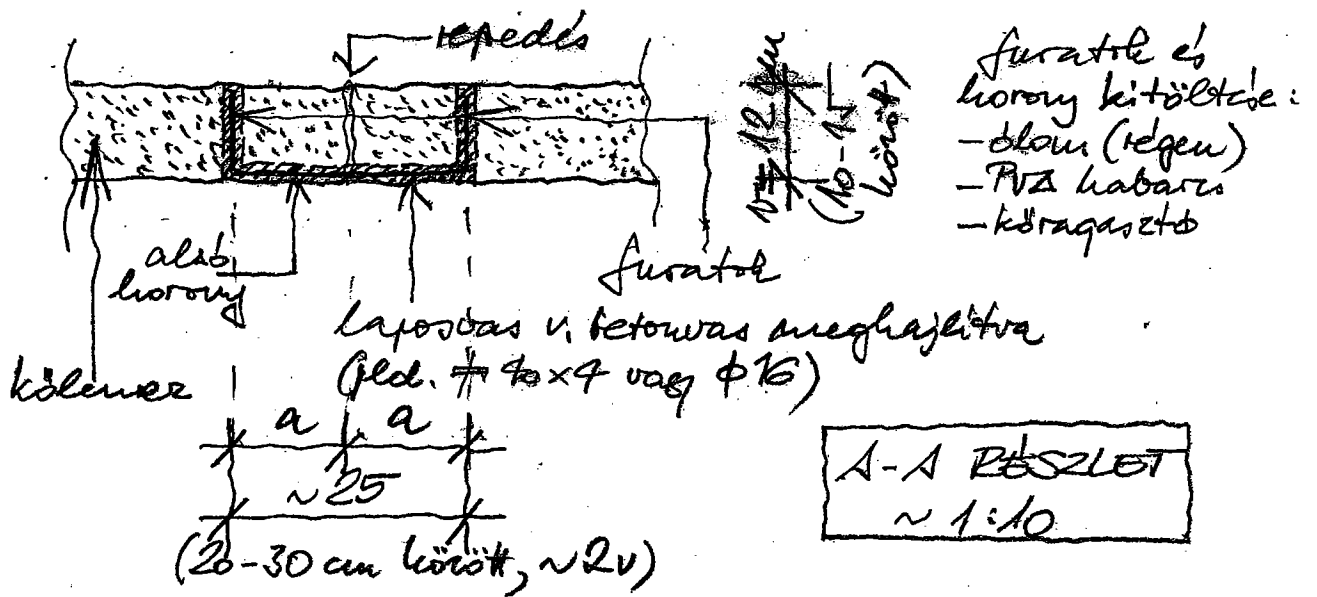 repedés
v=12 cm
(10-15
között)
furatok és
horony kitöltése:
-ólom (régen)
-PVA habarcs
-kőragasztó
alsó
horony
furatok
laposvas v. betonvas meghajlítva
(pld. 40×4 vagy ϕ16)
kőlemez
a a
~25
(20-30 cm között, ~2v)
A-A RÉSZLET
~ 1:10